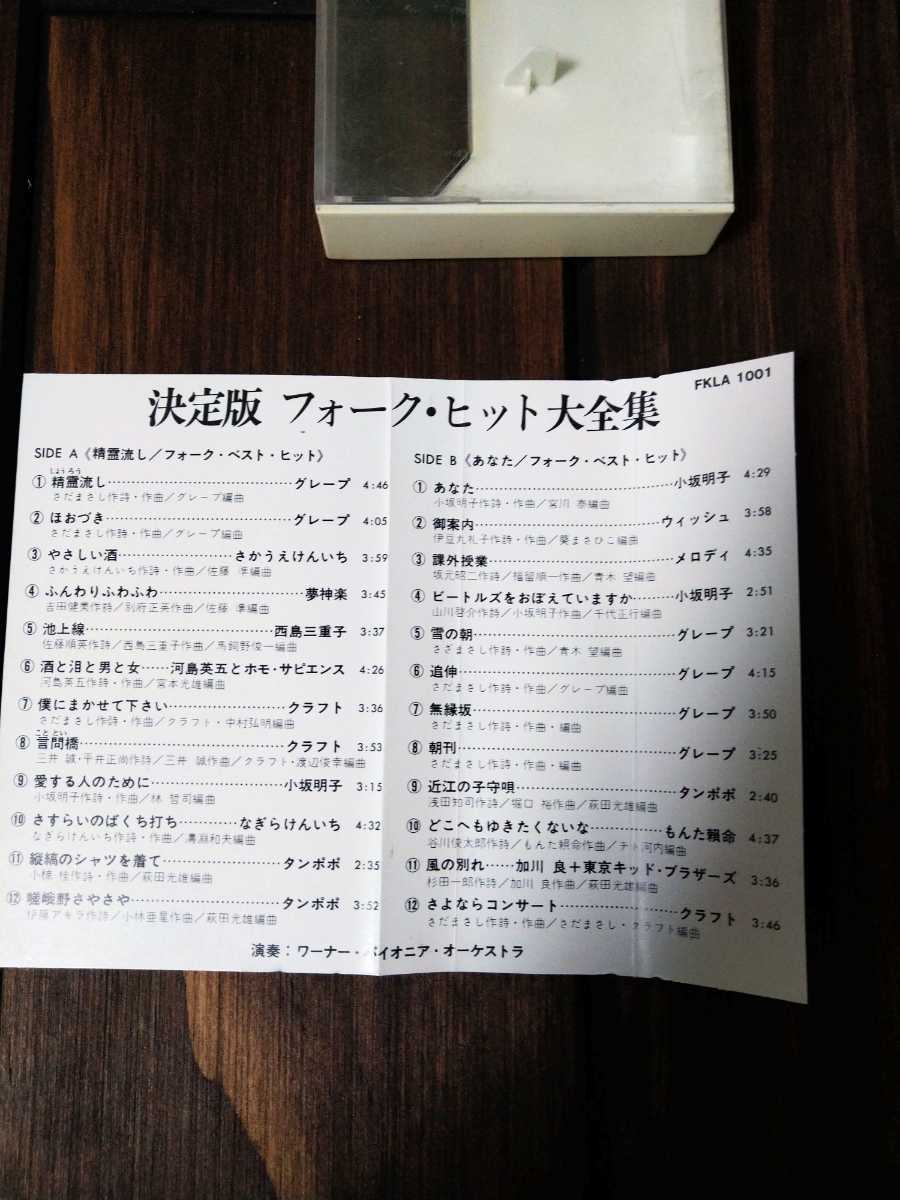 FKLA 1001
決定版 フォーク・ヒット大全集
SIDE A《精霊流し／フォーク・ベスト・ヒット》
しょうろう
①精霊流し……グレープ 4:46
さだまさし作詩・作曲／グレープ編曲
②ほおづき……グレープ 4:05
さだまさし作詩・作曲／グレープ編曲
③やさしい酒……さかうえけんいち 3:59
さかうえけんいち作詩・作曲／佐藤 準編曲
④ふんわりふわふわ……夢神楽 3:45
吉田健美作詩／別府正英作曲／佐藤 準編曲
⑤池上線……西島三重子 3:37
佐藤順英作詩／西島三重子作曲／馬飼野俊一編曲
⑥酒と泪と男と女……河島英五とホモ・サピエンス 4:26
河島英五作詩・作曲／宮本光雄編曲
⑦僕にまかせて下さい……クラフト 3:36
さだまさし作詩・作曲／クラフト・中村弘明編曲
こととい
⑧言問橋……クラフト 3:53
三井 誠・平井正尚作詩／三井 誠作曲／クラフト・渡辺俊幸編曲
⑨愛する人のために……小坂明子 3:15
小坂明子作詩・作曲／林 哲司編曲
⑩さすらいのばくち打ち……なぎらけんいち 4:32
なぎらけんいち作詩・作曲／溝淵和夫編曲
⑪縦縞のシャツを着て……タンポポ 2:35
小椋 桂作詩・作曲／萩田光雄編曲
⑫嵯峨野さやさや……タンポポ 3:52
伊藤アキラ作詩／小林亜星作曲／萩田光雄編曲
SIDE B《あなた／フォーク・ベスト・ヒット》
①あなた……小坂明子 4:29
小坂明子作詩・作曲／宮川 泰編曲
②御案内……ウィッシュ 3:58
伊豆丸礼子作詩・作曲／葵まさひこ編曲
③課外授業……メロディ 4:35
坂元昭二作詩／福留順一作曲／青木 望編曲
④ビートルズをおぼえていますか……小坂明子 2:51
山川啓介作詩／小坂明子作曲／千代正行編曲
⑤雪の朝……グレープ 3:21
さだまさし作詩・作曲／青木 望編曲
⑥追伸……グレープ 4:15
さだまさし作詩・作曲／グレープ編曲
⑦無縁坂……グレープ 3:50
さだまさし作詩・作曲・編曲
⑧朝刊……グレープ 3:25
さだまさし作詩・作曲・編曲
⑨近江の子守唄……タンポポ 2:40
浅田知司作詩／堀口 裕作曲／萩田光雄編曲
⑩どこへもゆきたくないな……もんた頼命 4:37
谷川俊太郎作詩／もんた頼命作曲／チト河内編曲
⑪風の別れ……加川 良＋東京キッド・ブラザーズ 3:36
杉田一郎作詩／加川 良作曲／萩田光雄編曲
⑫さよならコンサート……クラフト 3:46
さだまさし作詩・作曲／さだまさし・クラフト編曲
演奏：ワーナー・パイオニア・オーケストラ